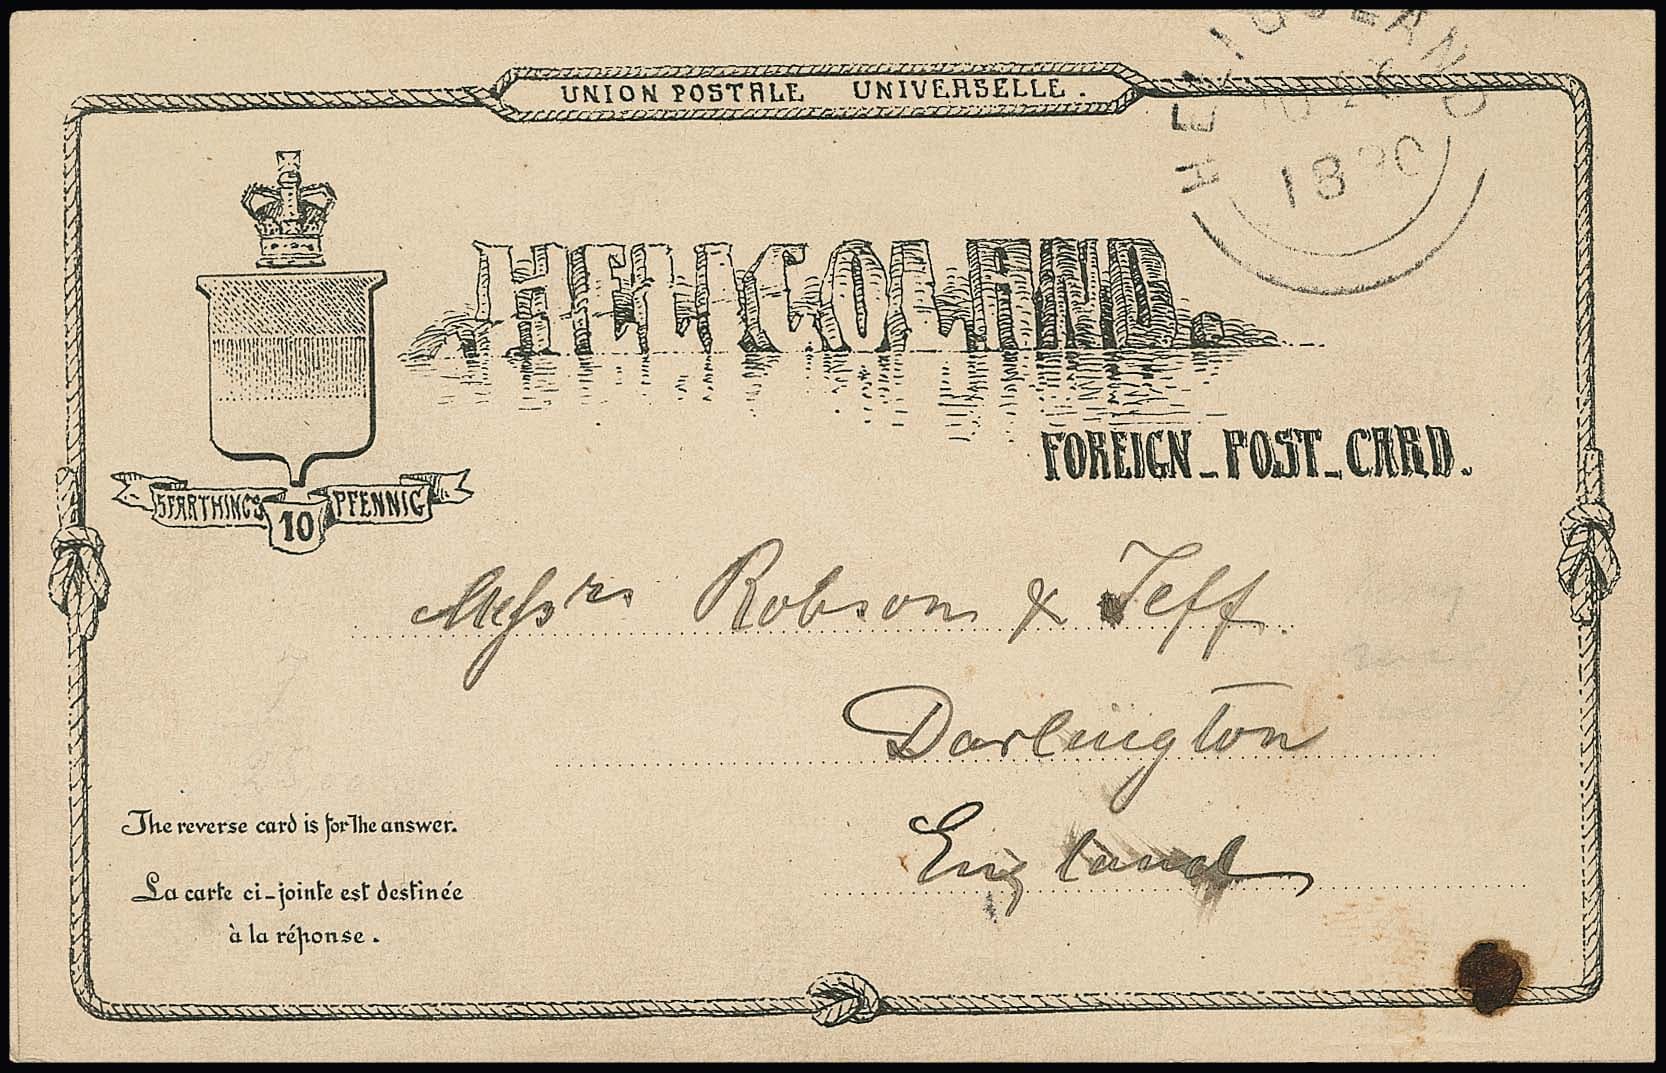 UNION POSTALE UNIVERSELLE.
HELIGOLAND
1890
HELIGOLAND
FOREIGN_POST_CARD.
5 FARTHINGS 10 PFENNIG
Messrs Robson & Jeff.
Darlington
England
The reverse card is for the answer.
La carte ci-jointe est destinée
à la réponse.